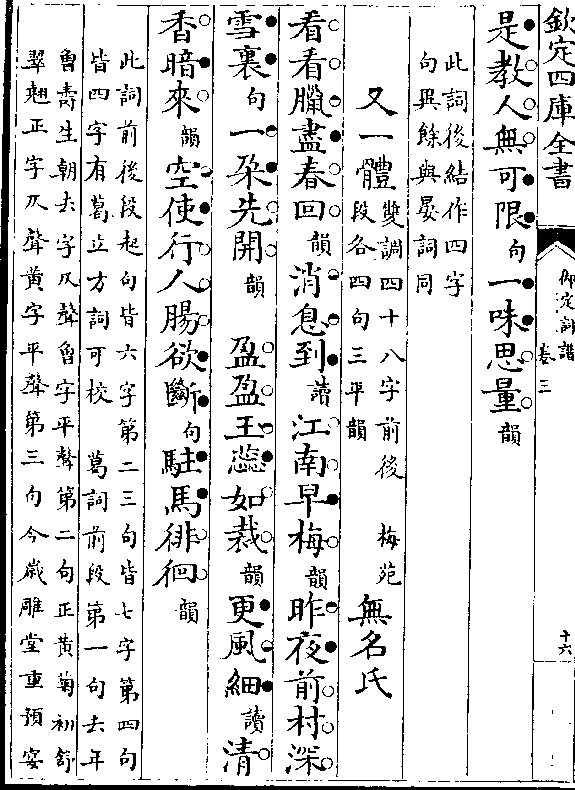 欽定四庫全書
御定詞譜
卷三
十六
是教人無可限句一味思量韻
此詞後結作四字
句異餘與晏詞同
又一體雙調四十八字前後
段各四句三平韻
梅苑無名氏
看看臘盡春回韻消息到讀江南早梅韻昨夜前村深
雪裏句一朶先開韻盈盈玉蕊如裁韻更風細讀清
香暗來韻空使行人腸欲斷句駐馬徘徊韻
此詞前後段起句皆六字第二三句皆七字第四句
皆四字有葛立方詞可校葛詞前段第一句去年
魯壽生朝去字仄聲魯字平聲第二句正黃菊初舒
翠翹正字仄聲黃字平聲第三句今歲雕堂重預宴